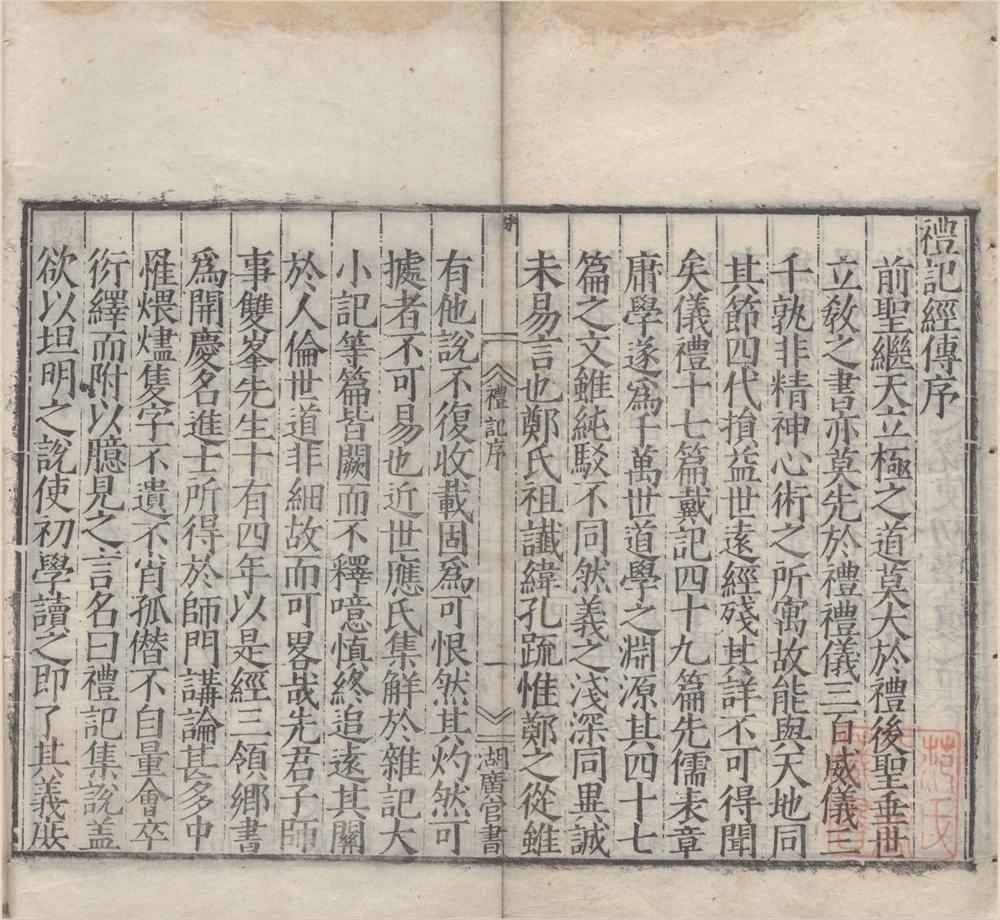 禮記經傳序
前聖繼天立極之道莫大於禮後聖垂世
立敎之書亦莫先於禮禮儀三百威儀三
千孰非精神心術之所寓故能與天地同
其節四代損益世遠經殘其詳不可得聞
矣儀禮十七篇戴記四十九篇先儒表章
庸學遂爲千萬世道學之淵源其四十七
篇之文雖純駁不同然義之淺深同異誠
未易言也鄭氏祖讖緯孔䟽惟鄭之從雖
禮記序
一
湖廣官書
有他說不復收載固爲可恨然其灼然可
據者不可易也近世應氏集解於雜記大
小記等篇皆闕而不釋噫慎終追遠其關
於人倫世道非細故而可畧哉先君子師
事雙峯先生十有四年以是經三領鄉書
爲開慶名進士所得於師門講論甚多中
罹煨燼隻字不遺不肖孤僭不自量會卒
衍繹而附以臆見之言名曰禮記集說盖
欲以坦明之說使初學讀之即了其義庶